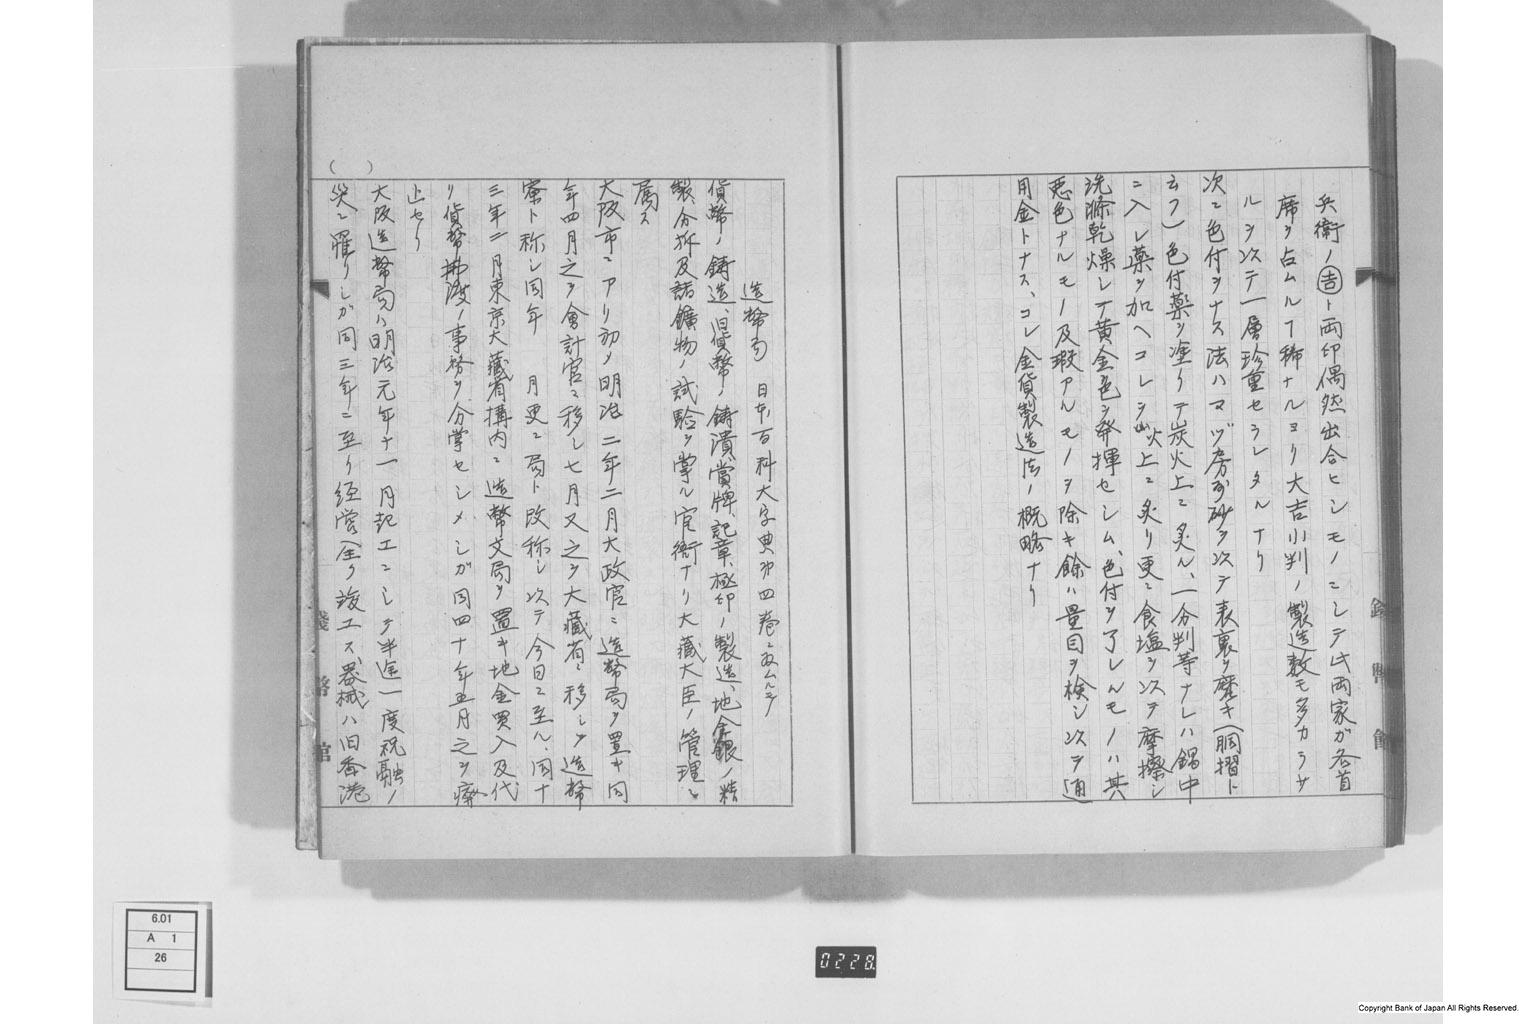 兵衛ノ吉ト両印偶然出合ヒシモノニシテ此両家ガ各首
席ヲ占ムルヿ稀ナルヨリ大吉小判ノ製造数モ多カラザ
ルヲ以テ一層珍重セラレタルナリ
次ニ色付ヲナス法ハマヅ房州砂ヲ以テ表裏ヲ磨キ(胴摺ト
云フ)色付薬ヲ塗リテ炭火上ニ炙ル、一分判等ナレハ鍋中
ニ入レ薬ヲ加ヘコレヲ火上ニ炙リ更ニ食塩ヲ以テ摩擦シ
洗滌乾燥シテ黄金色ヲ発揮セシム、色付ヲ了レルモノハ其
悪色ナルモノ及瑕アルモノヲ除キ餘ハ量目ヲ検シ以テ通
用金トナス、コレ金貨製造法ノ概略ナリ
造幣局 日本百科大字典第四巻
貨幣ノ鋳造、旧貨幣ノ鋳潰、賞牌、記章、極印ノ製造、地金銀ノ精
製、分析及諸鑛物ノ試験ヲ掌ル官衙ナリ大藏大臣ノ管理ニ
属ス
大阪市ニアリ初メ明治二年二月大政官ニ造幣局ヲ置キ同
年四月之ヲ會計官ニ移シ七月又之ヲ大藏省ニ移シ造幣
寮ト称シ同年 月更ニ局ト改称シ以テ今日ニ至ル、同十
三年二月東京大藏省構内ニ造幣支局ヲ置キ地金買入及代
リ貨幣拂渡ノ事務ヲ分掌セシメシガ同四十年五月之ヲ廃
止セリ
大阪造幣局ハ明治元年十一月起工ニシテ半途一度祝融ノ
災ニ罹リシガ同三年ニ至リ経営全ク竣工ス、器械ハ旧香港
( )
錢幣館
6.01
A 1
26
0228
Copyright Bank of Japan All Rights Reserved.